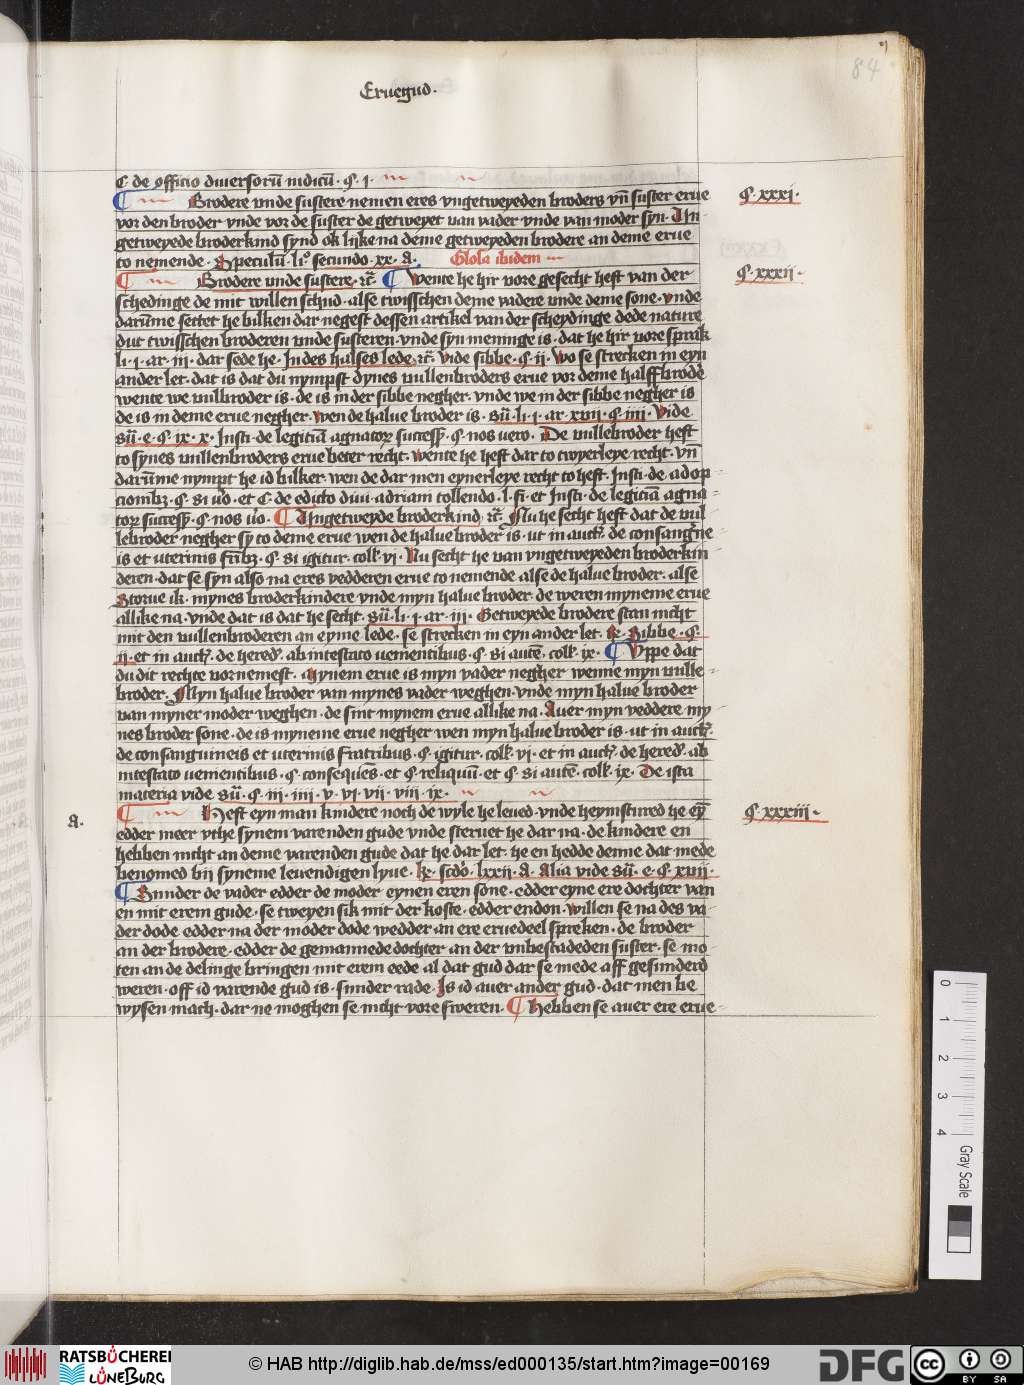 Eruegud.
84
C. de officio diuersorū iudicū. §. j.
Brodere vnde sustere nemen eres vngetweyeden broders vn̄ suster erue
§. xxxi.
vor den broder vnde vor de suster de getweyet van vader vnde van moder syn. Vn
getweyede broderkind synd ok lijke na deme getweyeden brodere an deme erue
to nemende. Speculū. li. secundo. xx. a. Glosa ibidem
Brodere vnde sustere. ⁊c̄. Wente he hir vore gesecht heft van der
§. xxxii.
schedinge de mit willen schud. alse twisschen deme vadere vnde deme sone. vnde
darūme settet he bilken dar negest dessen artikel van der scheydinge dede nature
dut twisschen broderen vnde susteren. vnde syn meninge is. dat he hir vore sprak
li. i. ar. iii. dar sede he. In des halses lede. ⁊c̄. vide sibbe. §. ii. Wo se strecken in eyn
ander let. dat is dat du nympst dynes vullenbroders erue vor deme halffbrode
wente we vulbroder is. de is in der sibbe negher. vnde we in der sibbe negher is
de is in deme erue negher. wen de halue broder is. sū. li. i. ar. xviii. §. iiii. Vide
sū. e. §. ix. x. Insti. de legitiā agnator successꝭ. §. nos vero. De vullebroder heft
to synes vullenbroders erue beter recht. wente he heft dar to twyerleye recht. vn̄
darūme nympt he id bilker. wen de dar men eynerleye recht to heft. Insti. de adop
cionibꝫ. §. si vo. et C. de edicto diui adriani tollendo. l. fi. et Insti. de legitiā agna
tor successꝭ. §. nos vo. Vngetweyde broderkind ⁊c̄. Nu he secht heft dat de vul
lebroder negher sy to deme erue wen de halue broder is. ut in auct. de consangne
is et uterinis frībꝫ. §. si igitur. coll. vi. Nu secht he van vngetweyeden broderkin
deren. dat se syn also na eres vedderen erue to nemende alse de halue broder. alse
Storue ik. mynes broderkindere vnde myn halue broder. de weren myneme erue
allike na. vnde dat is dat he secht. sū. li. i. ar. iii. Getweyede brodere stan nicht
mit den vullenbroderen an eyme lede. se strecken in eyn ander let. R. Sibbe. §.
ii. et in auct. de hered. ab intestato uenientibus. §. si autē. coll. ix. Vppe dat
du dit rechte vornemest. Mynem erue is myn vader negher wenne myn vulle
broder. Myn halue broder van mynes vader weghen. vnde myn halue broder
van myner moder weghen. de sint mynem erue allike na. Auer myn veddere my
nes broder sone. de is myneme erue negher wen myn halue broder is. ut in auct.
de consanguineis et uterinis fratribus. §. igitur. coll. vi. et in auct. de hered. ab
intestato uenientibus. §. consequēs. et §. reliquū. et §. si autē. coll. ix. De ista
materia vide sū. §. iii. iiii. v. vi. vii. viii. ix.
a.
Heft eyn man kindere noch de wyle he leued. vnde heymstured he ey
§. xxxiii.
edder meer vthe synem varenden gude vnde steruet he dar na. de kindere en
hebben nicht an deme varenden gude dat he dar let. he en hedde denne dat mede
benomed bij syneme leuendigen lyue. R. scdo. lxxii. a. Alia vide sū. e. §. xviii.
Sunder de vader edder de moder eynen eren sone. edder eyne ere dochter van
en mit erem gude. se tweyen sik mit der koste. edder endon. willen se na des va
der dode edder na der moder dode wedder an ere eruedeel spreken. de broder
an der brodere. edder de gemannede dochter an der vnbestadeden suster. se mo
ten an de delinge bringen mit erem eede al dat gud dar se mede aff gesunderd
weren. off id varende gud is. sunder rade. Is id auer ander gud. dat men be
wysen mach. dar ne moghen se nicht vore sweren. Hebben se auer ere erue
0
1
2
3
4
Gray Scale
RATSBÜCHEREI
LÜNEBURG
© HAB http://diglib.hab.de/mss/ed000135/start.htm?image=00169
DFG
cc
BY SA